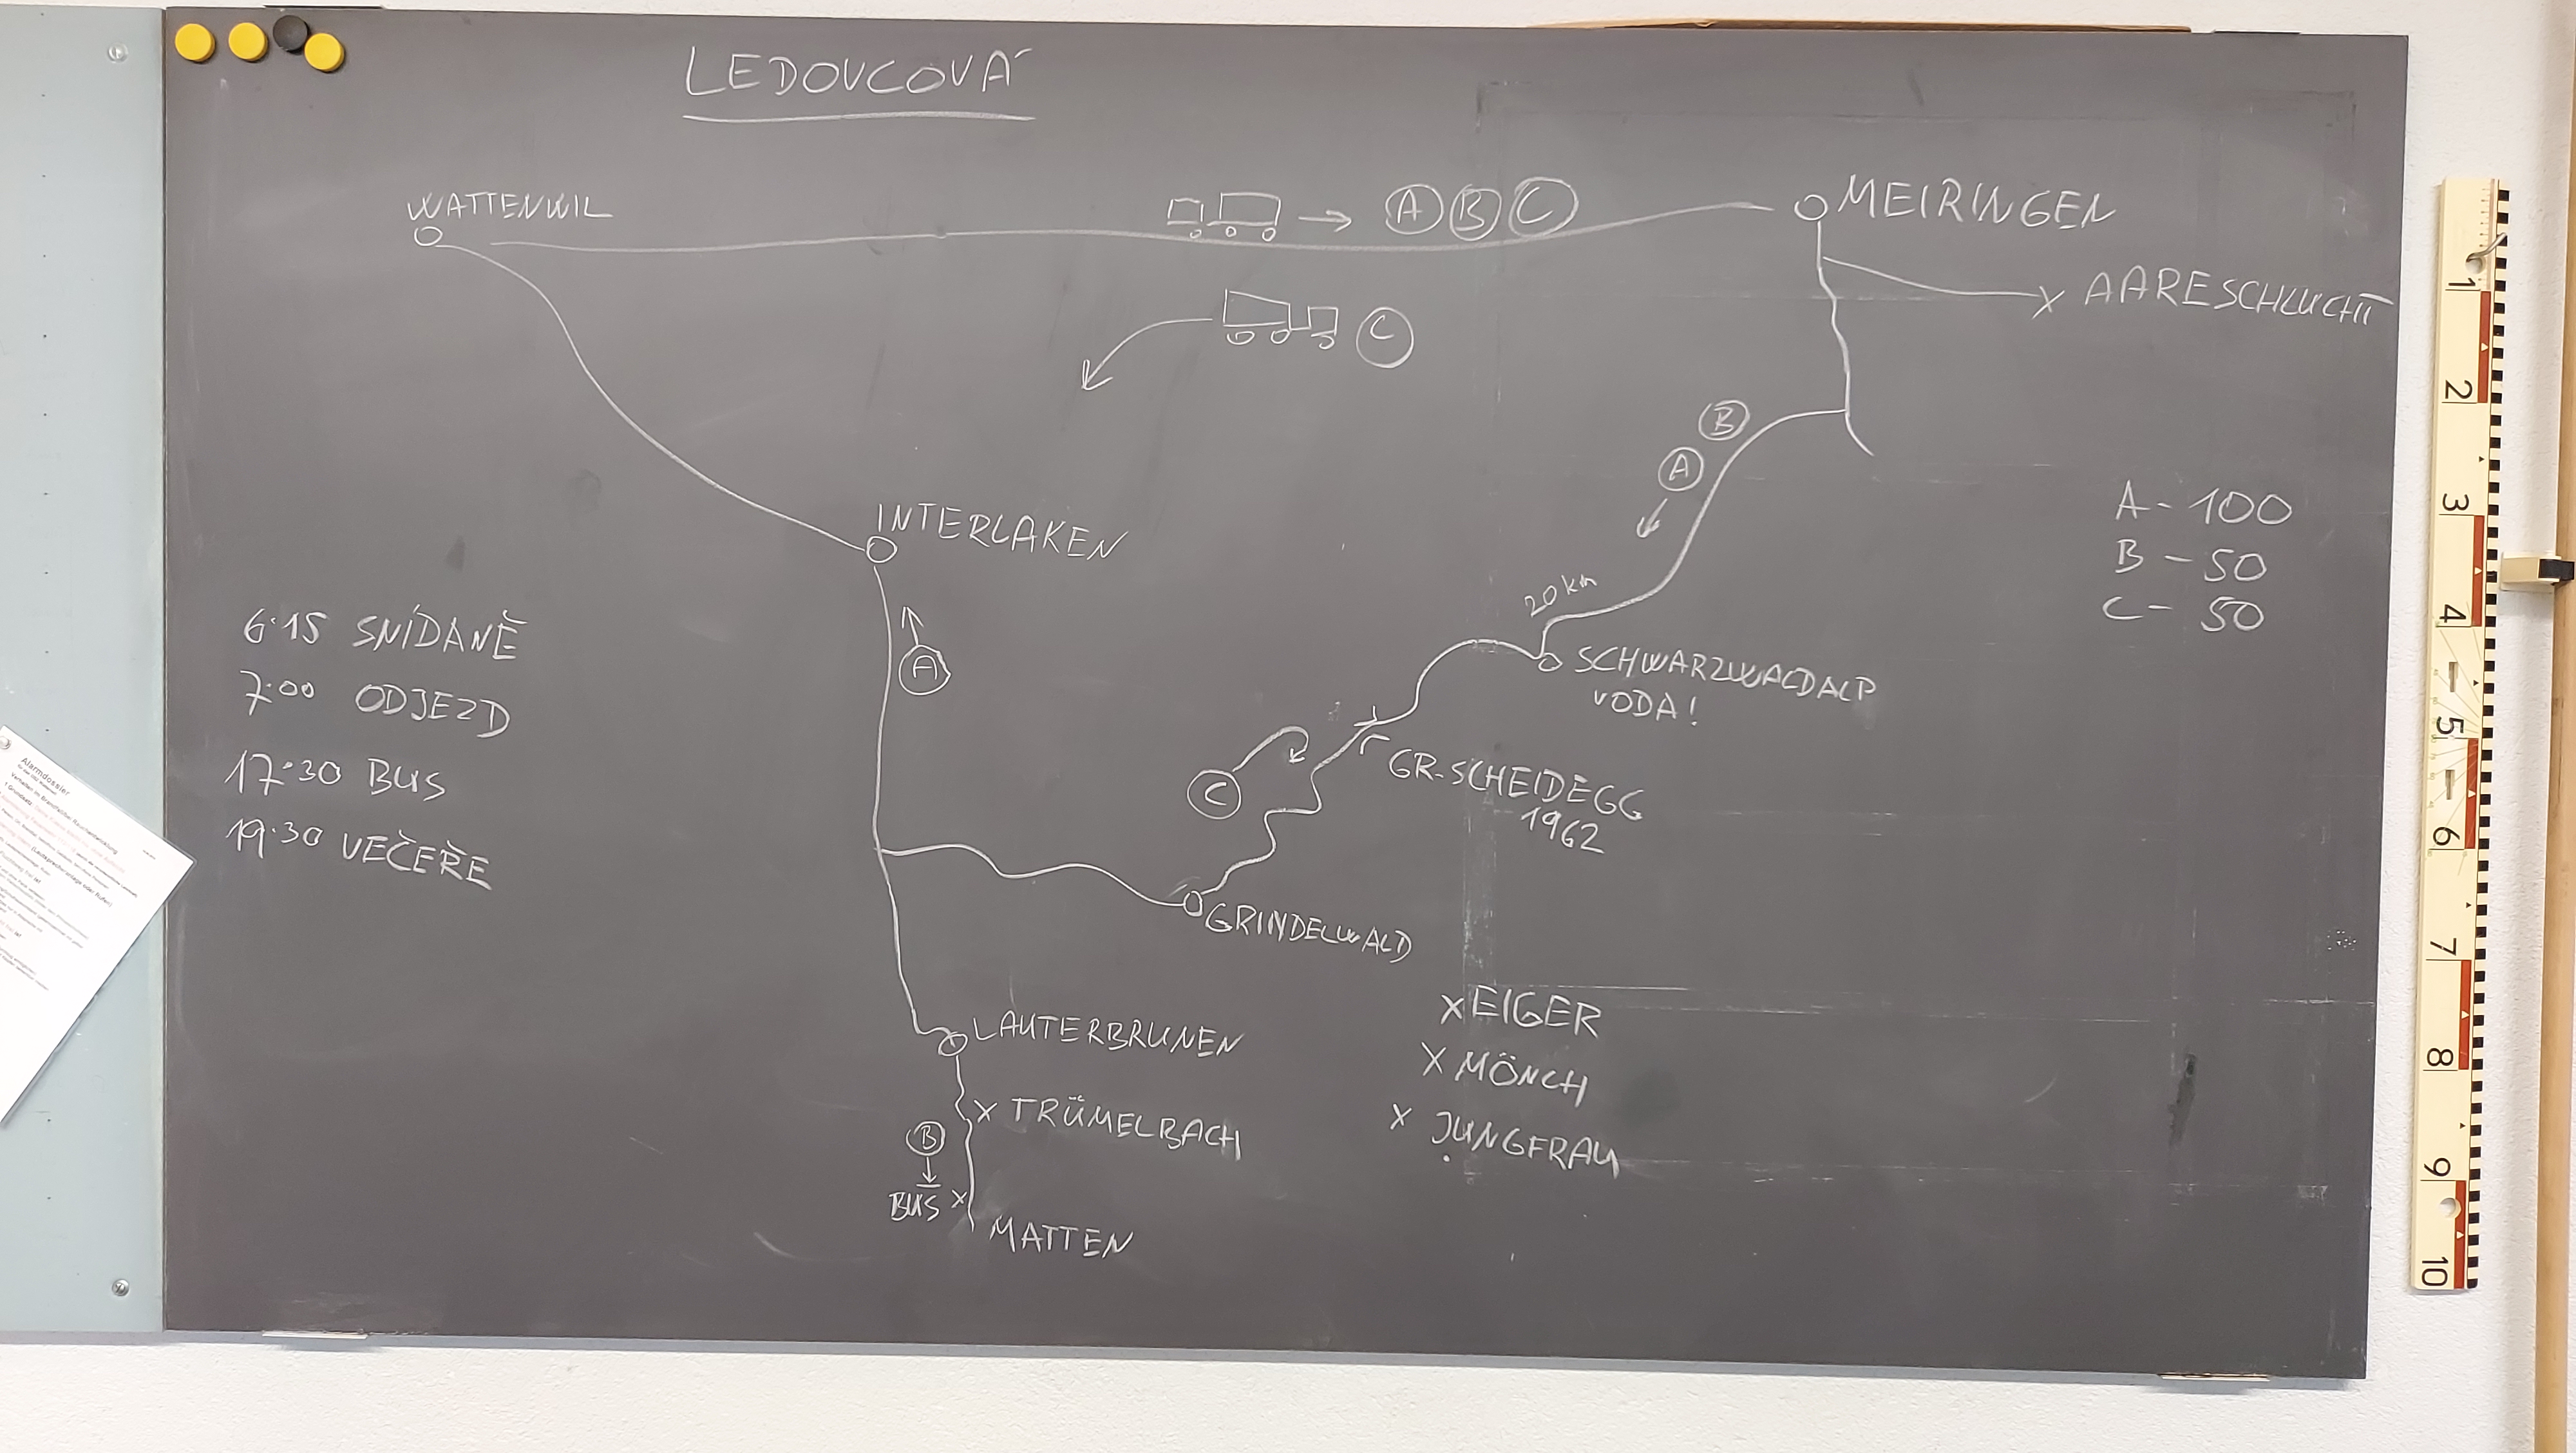 LEDOVCOVÁ
WATTENWIL
A B C
MEIRINGEN
AARESCHLUCHT
C
B
A
A - 100
B - 50
C - 50
INTERLAKEN
20 km
A
SCHWARZWALDALP
VODA!
6:15 SNÍDANĚ
7:00 ODJEZD
17:30 BUS
19:30 VEČEŘE
C
GR. SCHEIDEGG
1962
GRINDELWALD
LAUTERBRUNEN
X TRÜMELBACH
B
BUS X
MATTEN
X EIGER
X MÖNCH
X JUNGFRAU
Alarmdossier
1
2
3
4
5
6
7
8
9
10